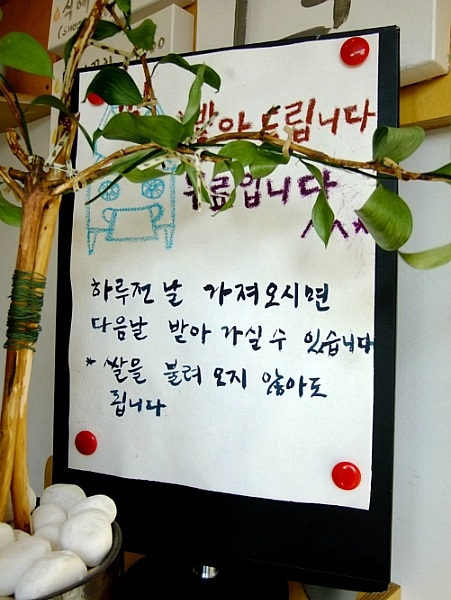 식혜
받아드립니다
무료입니다
하루전날 가져오시면
다음날 받아 가실 수 있습니다
* 쌀을 불려 오지 않아도
됩니다